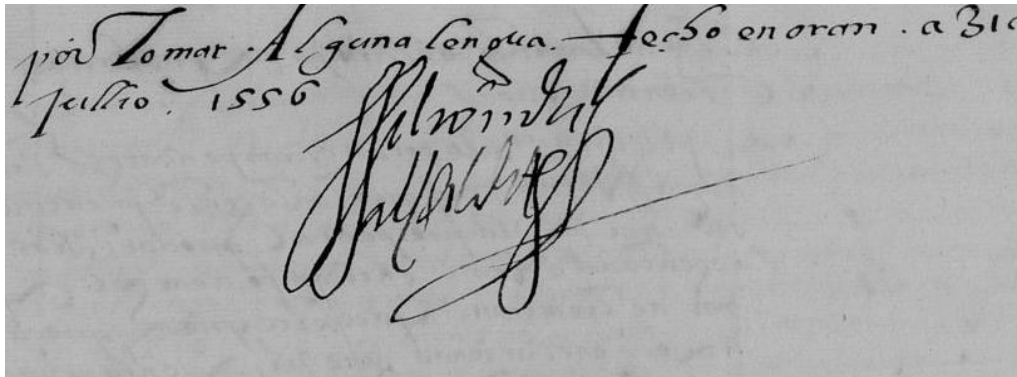 por Tomar Alguna lengua. fecho en oran. a 31
jullio. 1556